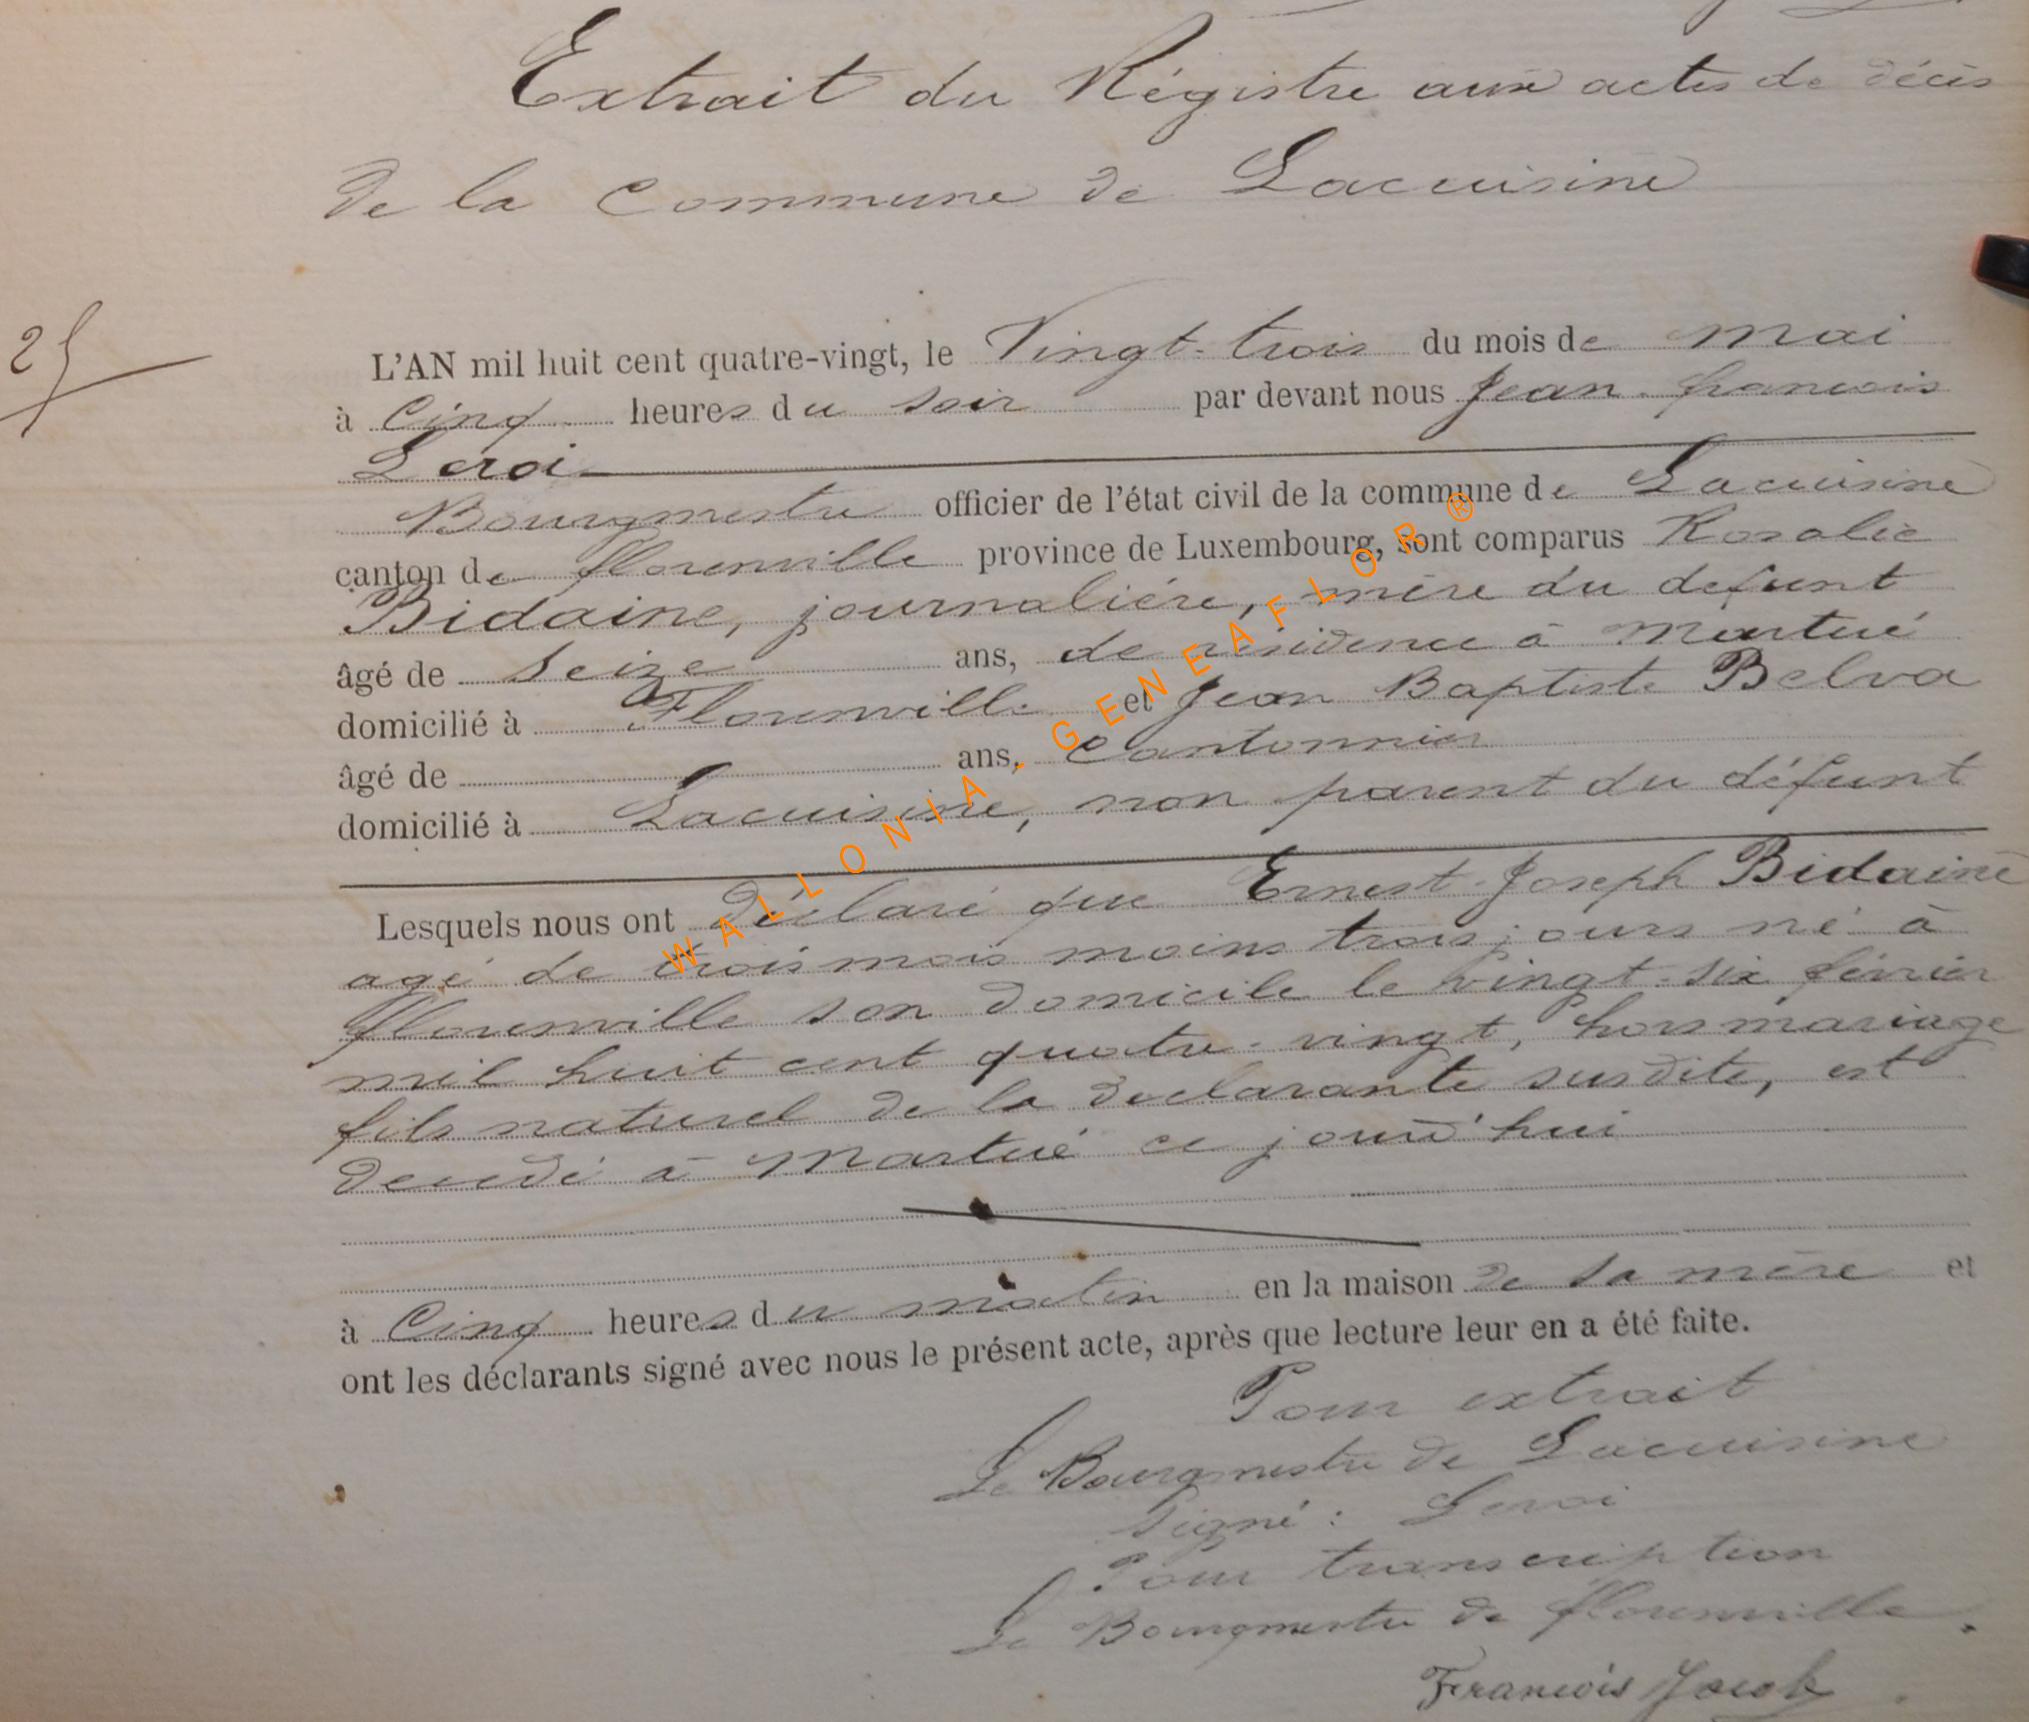 Extrait du Régistre aux actes de décès
de la Commune de Lacuisine
25
L'AN mil huit cent quatre-vingt, le Vingt-trois du mois de mai
à Cinq heures du soir par devant nous Jean-francois
Leroi
Bourgmestre officier de l'état civil de la commune de Lacuisine
canton de florenville province de Luxembourg, sont comparus Rosalie
Bidaine, journalière, mère du defunt
âgé de Seize ans, de résidence à Martué
domicilié à Florenville et Jean Baptiste Belva
âgé de ans, Cantonnier
domicilié à Lacuisine, non parent du défunt
Lesquels nous ont déclaré que Ernest-Joseph Bidaine
agé de trois mois moins trois jours né à
florenville son domicile le vingt-six février
mil huit cent quatre-vingt, hors mariage
fils naturel de la declarante susdite, est
decedé à Martué ce jourd'hui
à Cinq heures du matin en la maison de sa mère et
ont les déclarants signé avec nous le présent acte, après que lecture leur en a été faite.
Pour extrait
Le Bourgmestre de Lacuisine
Signé : Leroi
Pour transcription
Le Bourgmestre de florenville.
Francois Jacob
WALLONIA - GENEAFLOR ®